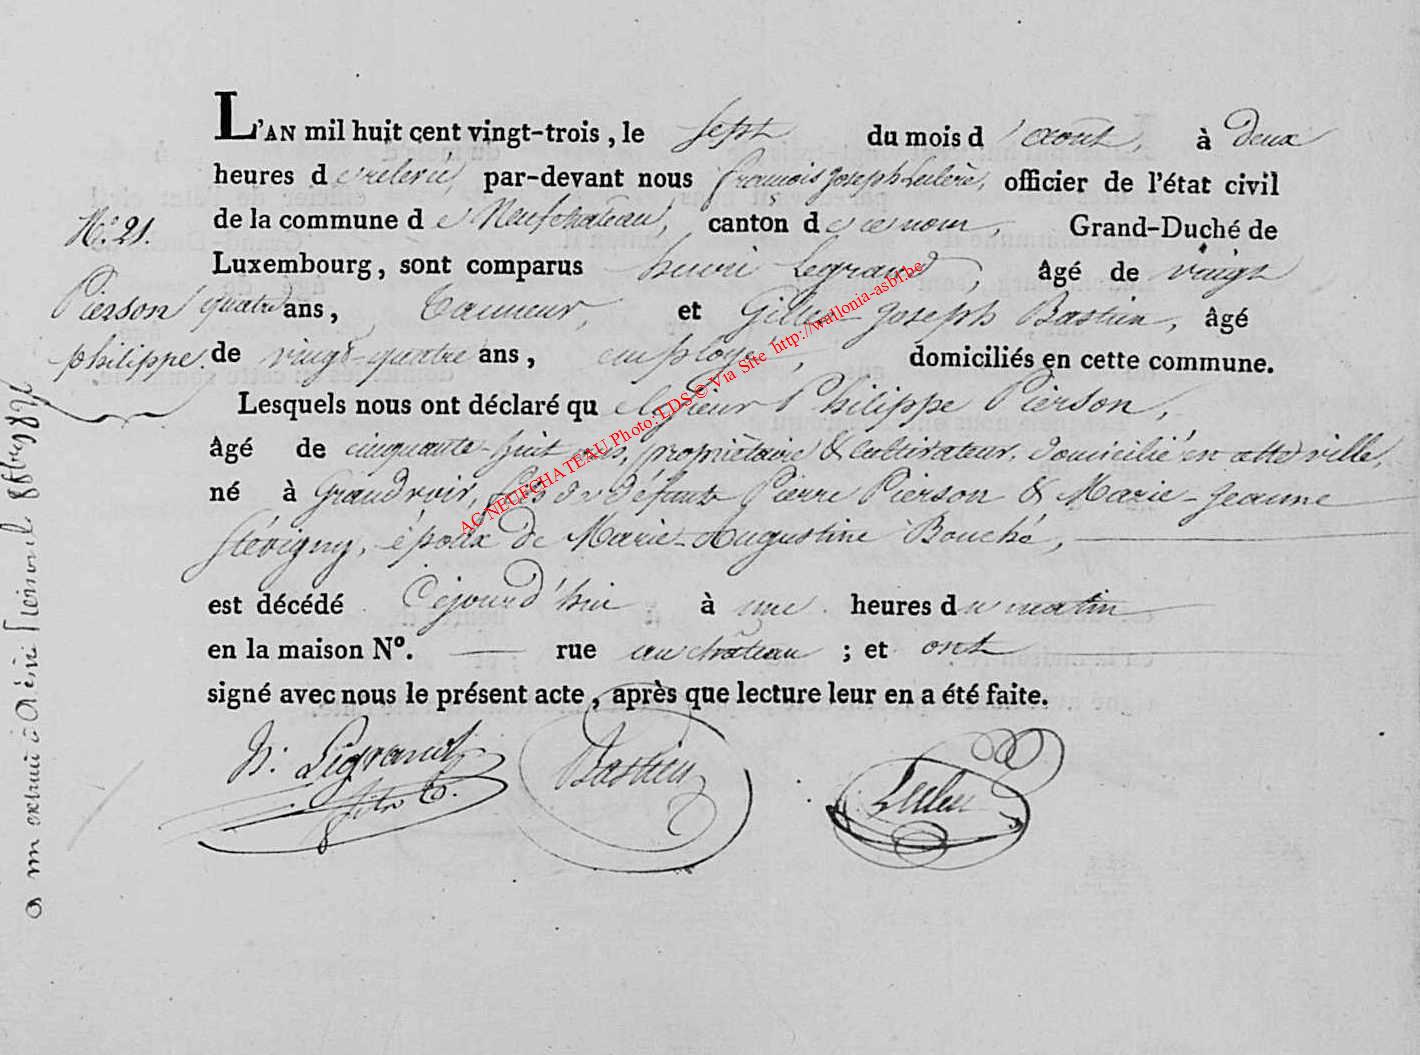 L'AN mil huit cent vingt-trois, le sept du mois d'août, à deux
heures de relevée, par-devant nous françois joseph Leclère, officier de l'état civil
de la commune de Neufchateau, canton de ce nom, Grand-Duché de
Luxembourg, sont comparus henri Legrand, âgé de vingt
quatre ans, Tanneur, et Gilles joseph Bastien, âgé
de vingt-quatre ans, employé, domiciliés en cette commune.
Lesquels nous ont déclaré que le sieur Philippe Pierson,
âgé de cinquante-huit ans, propriétaire & cultivateur, domicilié en cette ville,
né à Grandvoir, fils de défunts Pierre Pierson & Marie-jeanne
Stévigny, époux de Marie-Augustine Bouché,
est décédé Cejourd'hui à une heures du matin
en la maison Nº. — rue au château ; et ont
signé avec nous le présent acte, après que lecture leur en a été faite.
h. Legrand
fils
Bastien
Leclere
Nº. 21.
Pierson
philippe.
AC NEUFCHATEAU Photo: LDS © Via Site http://wallonia-asbl.be